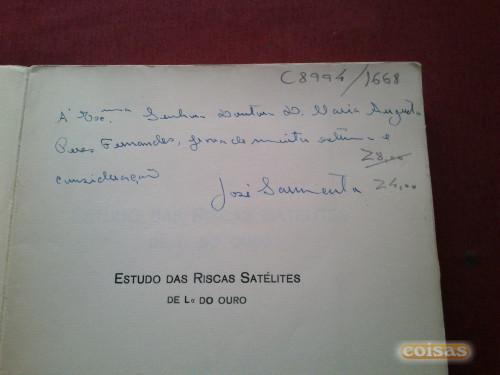 C8994/1668
À Exc.ma Senhora Doutora D. Maria Augusta
Peres Fernandes, prova de muita estima e
28,00
consideração
José Sarmento 24,00
ESTUDO DAS RISCAS SATÉLITES
DE Lα DO OURO
coisas